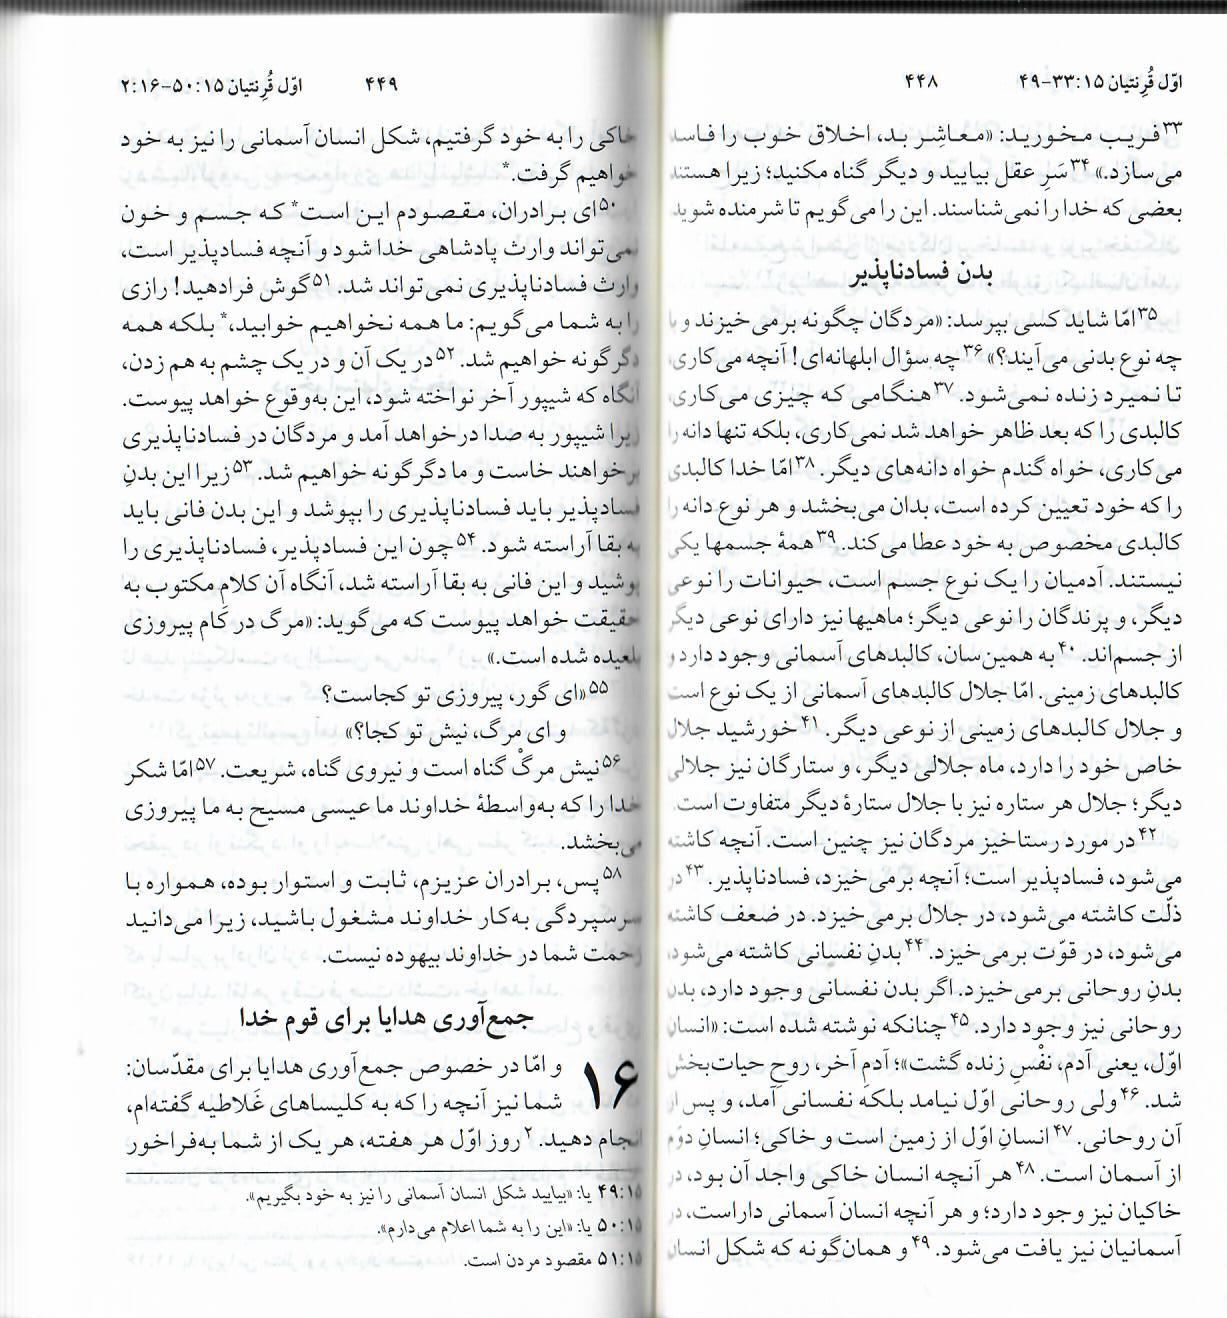 اوّل قُرِنتیان ۱۵:‏۳۳-۴۹
۴۴۸
۳۳فریب مخورید: «معاشِر بد، اخلاق خوب را فاسد
می‌سازد.» ۳۴سَرِ عقل بیایید و دیگر گناه مکنید؛ زیرا هستند
بعضی که خدا را نمی‌شناسند. این را می‌گویم تا شرمنده شوید
بدن فسادناپذیر
۳۵امّا شاید کسی بپرسد: «مردگان چگونه برمی‌خیزند و با
چه نوع بدنی می‌آیند؟» ۳۶چه سؤال ابلهانه‌ای! آنچه می‌کاری،
تا نمیرد زنده نمی‌شود. ۳۷هنگامی که چیزی می‌کاری،
کالبدی را که بعد ظاهر خواهد شد نمی‌کاری، بلکه تنها دانه را
می‌کاری، خواه گندم خواه دانه‌های دیگر. ۳۸امّا خدا کالبدی
را که خود تعیین کرده است، بدان می‌بخشد و هر نوع دانه را
کالبدی مخصوص به خود عطا می‌کند. ۳۹همهٔ جسمها یکی
نیستند. آدمیان را یک نوع جسم است، حیوانات را نوعی
دیگر، و پرندگان را نوعی دیگر؛ ماهیها نیز دارای نوعی دیگر
از جسم‌اند. ۴۰به همین‌سان، کالبدهای آسمانی وجود دارد و
کالبدهای زمینی. امّا جلال کالبدهای آسمانی از یک نوع است
و جلال کالبدهای زمینی از نوعی دیگر. ۴۱خورشید جلال
خاص خود را دارد، ماه جلالی دیگر، و ستارگان نیز جلالی
دیگر؛ جلال هر ستاره نیز با جلال ستارهٔ دیگر متفاوت است.
۴۲در مورد رستاخیز مردگان نیز چنین است. آنچه کاشته
می‌شود، فسادپذیر است؛ آنچه برمی‌خیزد، فسادناپذیر. ۴۳در
ذلّت کاشته می‌شود، در جلال برمی‌خیزد. در ضعف کاشته
می‌شود، در قوّت برمی‌خیزد. ۴۴بدنِ نفسانی کاشته می‌شود،
بدنِ روحانی برمی‌خیزد. اگر بدن نفسانی وجود دارد، بدن
روحانی نیز وجود دارد. ۴۵چنانکه نوشته شده است: «انسان
اوّل، یعنی آدم، نفْسِ زنده گشت»؛ آدم آخر، روحِ حیات‌بخش
شد. ۴۶ولی روحانی اوّل نیامد بلکه نفسانی آمد، و پس از
آن روحانی. ۴۷انسانِ اوّل از زمین است و خاکی؛ انسانِ دوّم
از آسمان است. ۴۸هر آنچه انسان خاکی واجد آن بود، در
خاکیان نیز وجود دارد؛ و هر آنچه انسان آسمانی داراست، در
آسمانیان نیز یافت می‌شود. ۴۹و همان‌گونه که شکل انسان
۴۴۹
اوّل قُرِنتیان ۱۵:‏۵۰-۱۶:‏۲
خاکی را به خود گرفتیم، شکل انسان آسمانی را نیز به خود
خواهیم گرفت.*
۵۰ای برادران، مقصودم این است* که جسم و خون
نمی‌تواند وارث پادشاهی خدا شود و آنچه فسادپذیر است،
وارث فسادناپذیری نمی‌تواند شد. ۵۱گوش فرادهید! رازی
را به شما می‌گویم: ما همه نخواهیم خوابید،* بلکه همه
دگرگونه خواهیم شد. ۵۲در یک آن و در یک چشم به هم زدن،
آنگاه که شیپور آخر نواخته شود، این به‌وقوع خواهد پیوست.
زیرا شیپور به صدا درخواهد آمد و مردگان در فسادناپذیری
برخواهند خاست و ما دگرگونه خواهیم شد. ۵۳زیرا این بدنِ
فسادپذیر باید فسادناپذیری را بپوشد و این بدن فانی باید
به بقا آراسته شود. ۵۴چون این فسادپذیر، فسادناپذیری را
پوشید و این فانی به بقا آراسته شد، آنگاه آن کلامِ مکتوب به
حقیقت خواهد پیوست که می‌گوید: «مرگ در کامِ پیروزی
بلعیده شده است.»
۵۵«ای گور، پیروزی تو کجاست؟
و ای مرگ، نیش تو کجا؟»
۵۶نیش مرگْ گناه است و نیروی گناه، شریعت. ۵۷امّا شکر
خدا را که به‌واسطهٔ خداوند ما عیسی مسیح به ما پیروزی
می‌بخشد.
۵۸پس، برادران عزیزم، ثابت و استوار بوده، همواره با
سرسپردگی به‌کار خداوند مشغول باشید، زیرا می‌دانید
زحمت شما در خداوند بیهوده نیست.
جمع‌آوری هدایا برای قوم خدا
۱۶ و امّا در خصوص جمع‌آوری هدایا برای مقدّسان:
شما نیز آنچه را که به کلیساهای غَلاطیه گفته‌ام،
انجام دهید. ۲روز اوّل هر هفته، هر یک از شما به‌فراخور
۴۹:۱۵ یا: «بیایید شکل انسان آسمانی را نیز به خود بگیریم».
۵۰:۱۵ یا: «این را به شما اعلام می‌دارم».
۵۱:۱۵ مقصود مردن است.